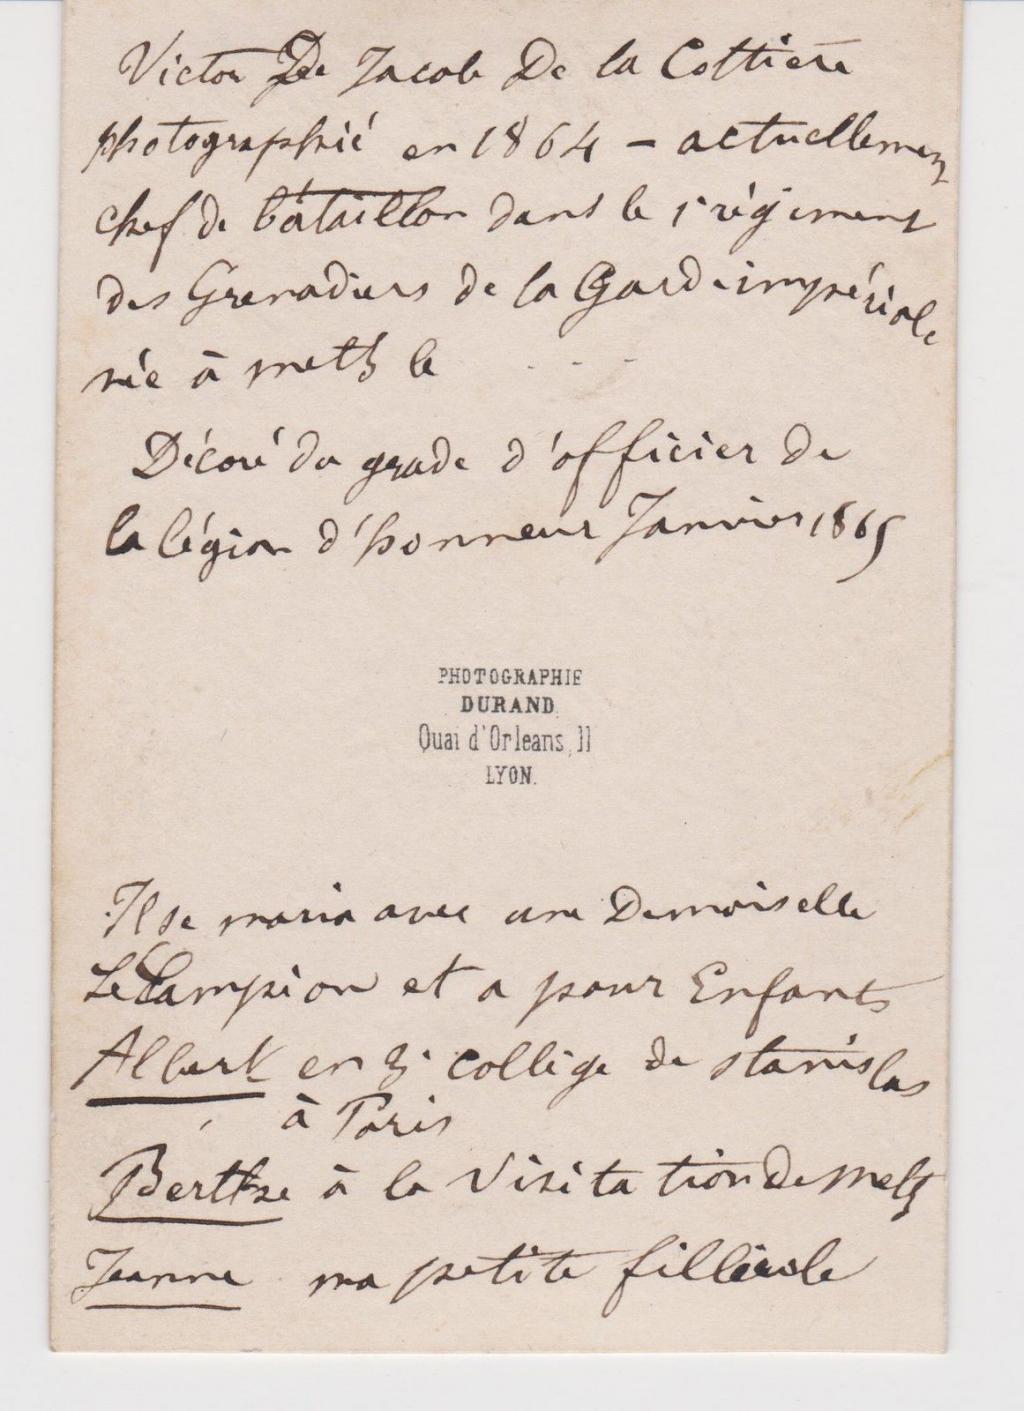 Victor De Jacob De la Cottiere
photographié en 1864 – actuellement
chef de bátaillon dans le 1r régiment
des Grenadiers de la Garde impériale
née à metz le . - -
Décoré du grade d'officier de
la légion d'honneur Janvier 1865
PHOTOGRAPHIE
DURAND.
Quai d'Orleans, 11
LYON.
Il se maria avec une Demoiselle
Le Campion et a pour Enfants
Albert en 3e collège de stanislas
à Paris
Berthe à la Visitation De Metz
Jeanne ma petite filleule